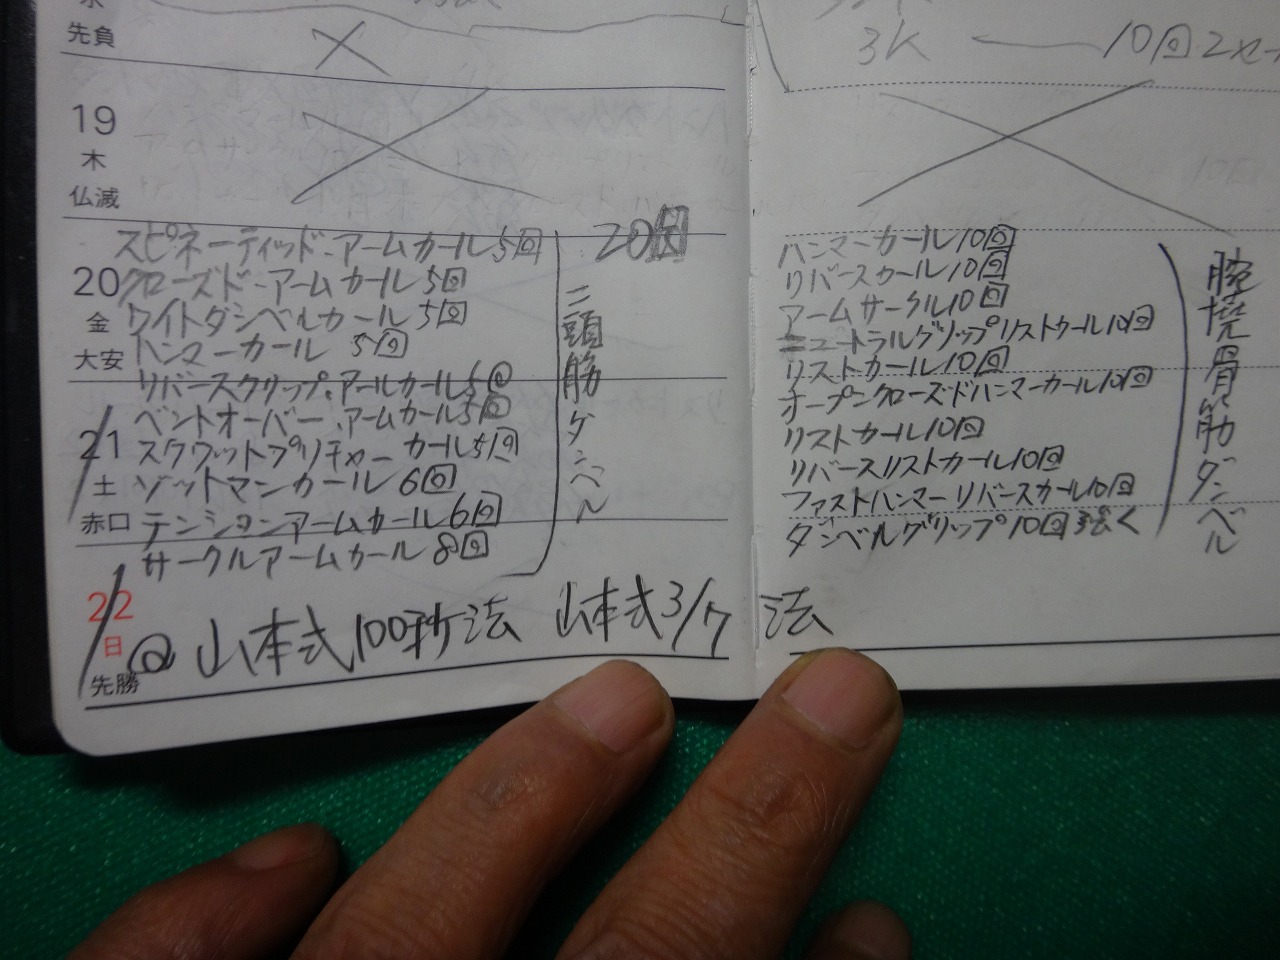 先負
3K 10回2セ
19
木
仏滅
スピネーティッド・アームカール5回
20回
20
金
大安
クローズド-アームカール5回
ワイトダンベルカール5回
ハンマーカール 5回
リバースクリップ.アールカール5回
ベントオーバー.アームカール5回
21
土
赤口
スクワットプリチャーカール5回
ゾットマンカール6回
テンションアームカール6回
サークルアームカール8回
二頭筋ダンベル
ハンマーカール10回
リバースカール10回
アームサークル10回
ニュートラルグリップリストカール10回
リストカール10回
オープンクローズドハンマーカール10回
リストカール10回
リバースリストカール10回
ファストハンマーリバースカール10回
ダンベルグリップ10回強く
腕撓骨筋ダンベル
22
日
先勝
@ 山本式100秒法 山本式3/7法